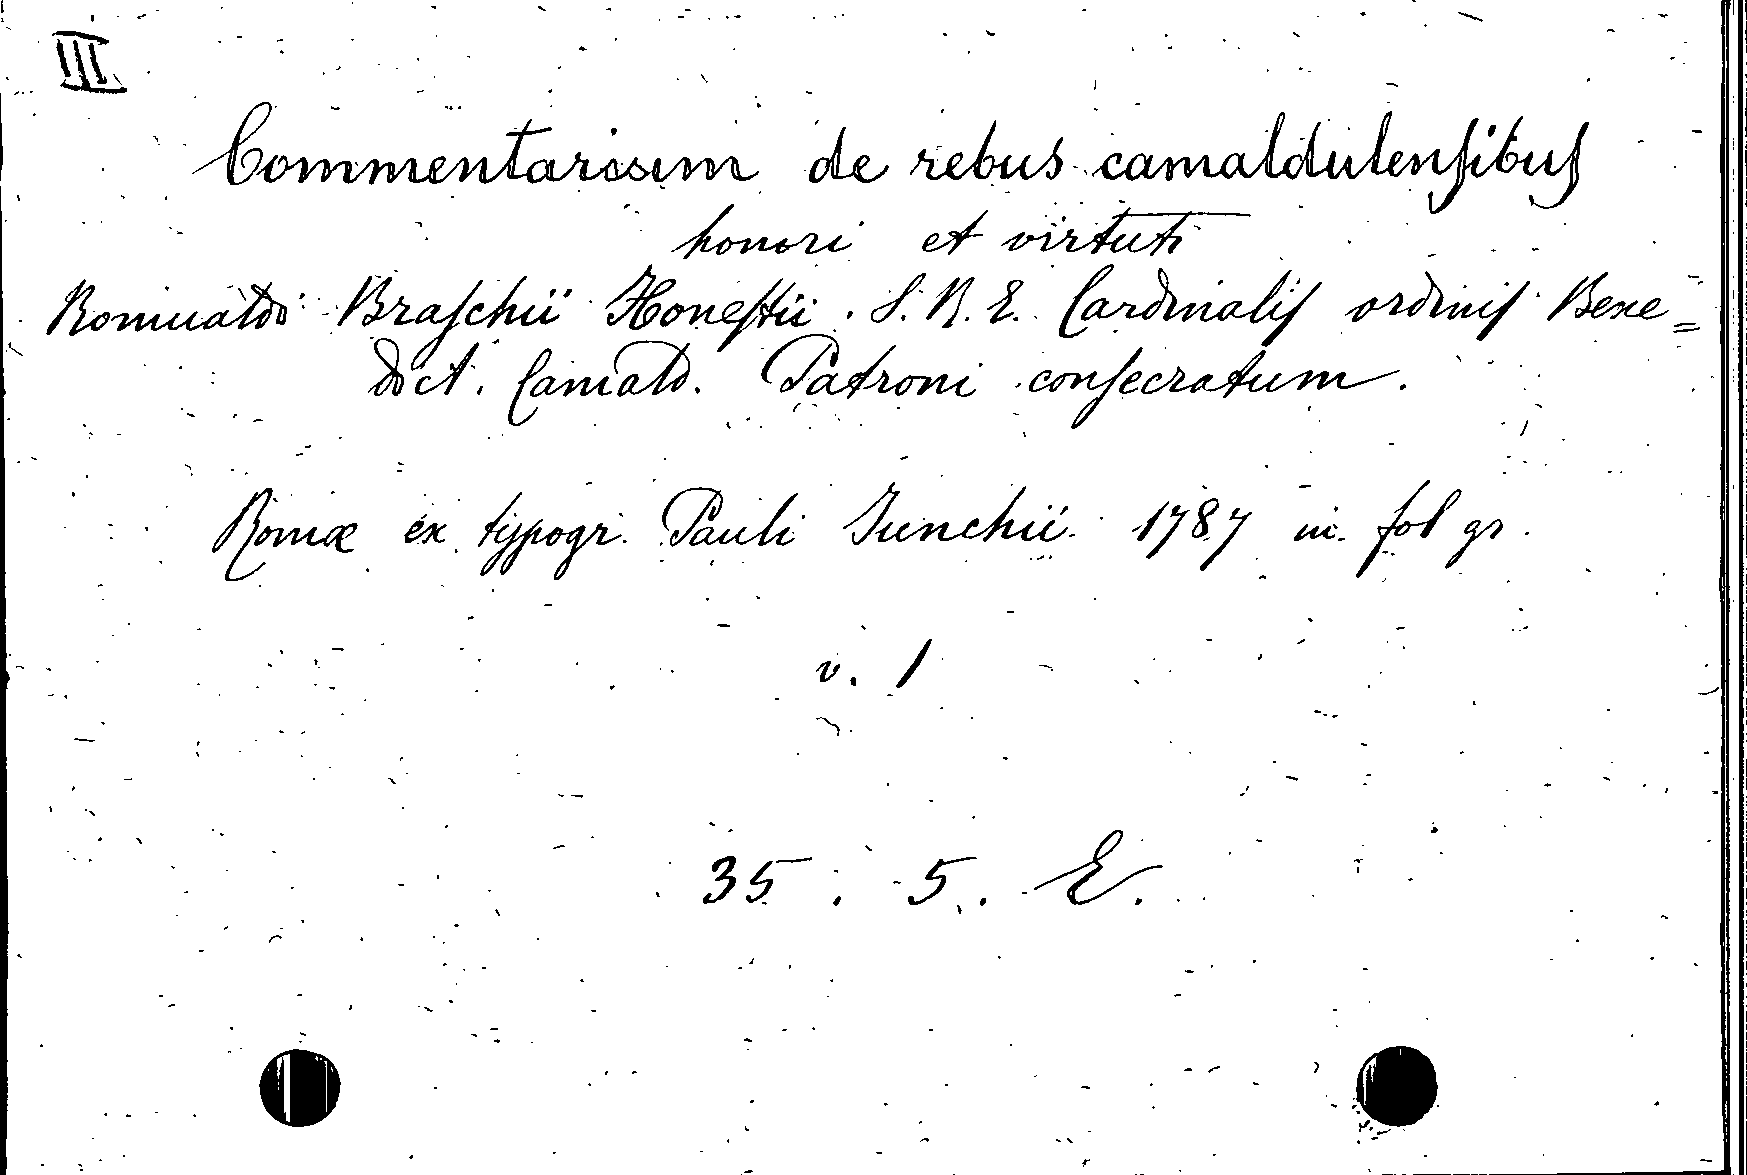 III
Commentarium de rebus camaldulensibus
honori et virtuti
Romualdi Braschii Honestii . S. R. E. Cardinalis ordinis Bene=
dict. Camald. Patroni consecratum.
Romæ ex typogr. Pauli Junchii 1787 in fol gr.
v. 1
35 . 5. E.